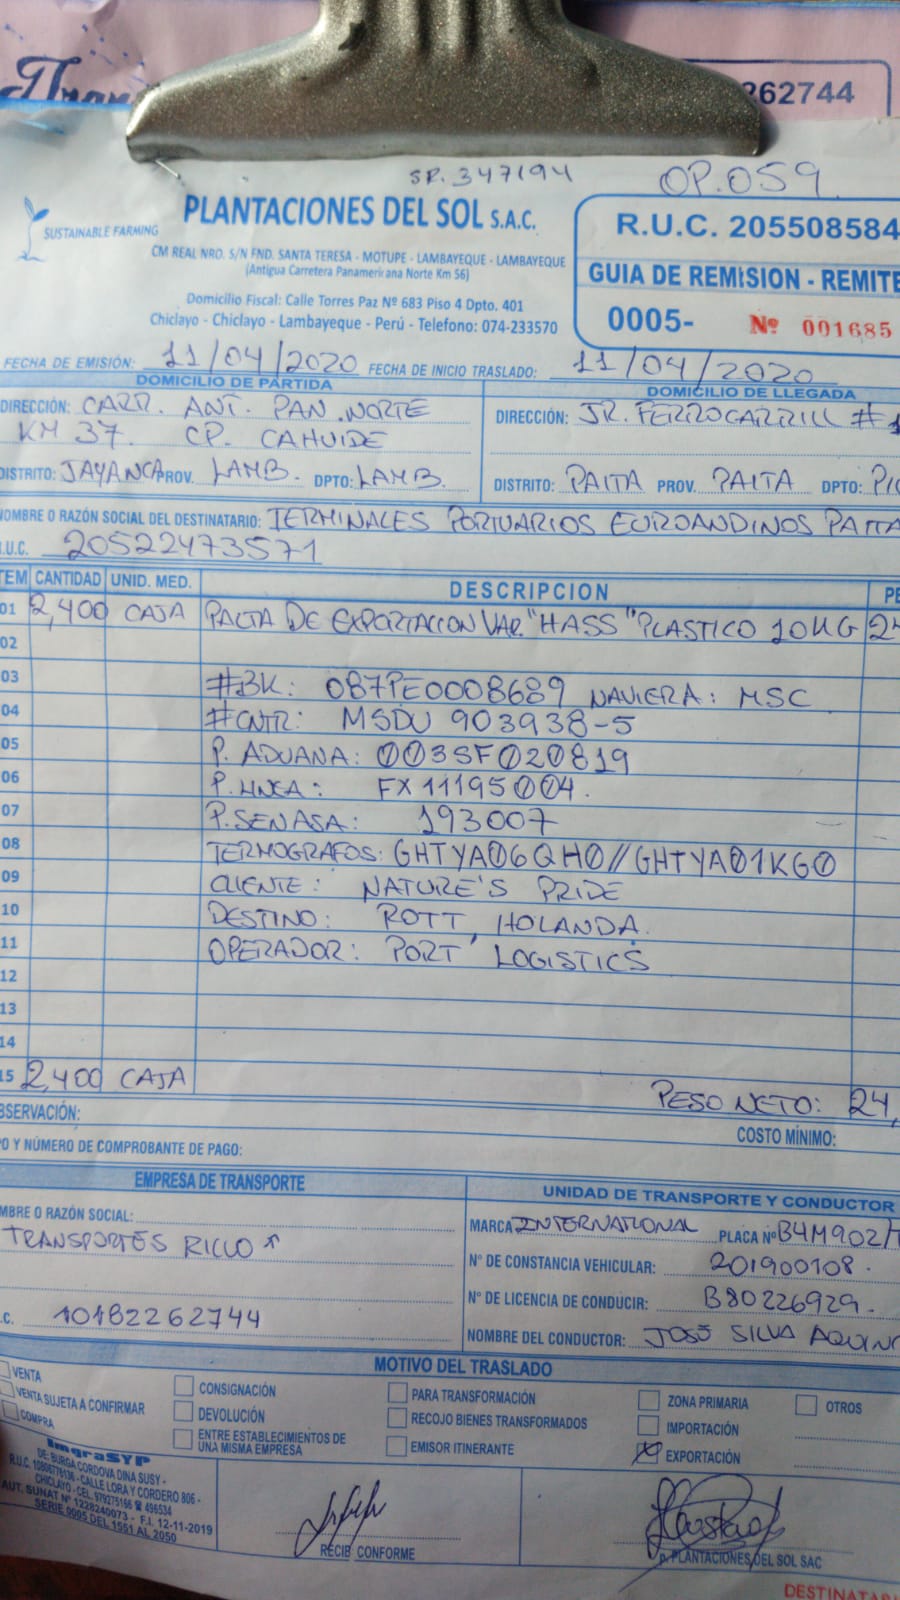 262744
SR. 347194
OP. 059
SUSTAINABLE FARMING
PLANTACIONES DEL SOL S.A.C.
CM REAL NRO. S/N FND. SANTA TERESA - MOTUPE - LAMBAYEQUE - LAMBAYEQUE
(Antigua Carretera Panamericana Norte Km 56)
Domicilio Fiscal: Calle Torres Paz Nº 683 Piso 4 Dpto. 401
Chiclayo - Chiclayo - Lambayeque - Perú - Telefono: 074-233570
R.U.C. 205508584
GUIA DE REMISION - REMITE
0005- Nº 001685
FECHA DE EMISIÓN: 11/04/2020 FECHA DE INICIO TRASLADO: 11/04/2020
DOMICILIO DE PARTIDA
DIRECCIÓN: CARR. ANT. PAN. NORTE
KM 37. CP. CAHUIDE
DISTRITO: JAYANCA PROV. LAMB. DPTO: LAMB.
DOMICILIO DE LLEGADA
DIRECCIÓN: JR. FERROCARRILL #1
DISTRITO: PAITA PROV. PAITA DPTO: PI
NOMBRE O RAZÓN SOCIAL DEL DESTINATARIO: TERMINALES PORTUARIOS EUROANDINOS PAITA
R.U.C. 20522473571
TEM CANTIDAD UNID. MED. DESCRIPCION PE
01 2,400 CAJA PALTA DE EXPORTACION VAR. "HASS" PLASTICO 10KG 24
02
03 #BK: 087PE0008689 NAVIERA: MSC
04 #CNTR: MSDU 903938-5
05 P. ADUANA: 003SF020819
06 P. LINEA: FX11195004.
07 P. SENASA: 193007
08 TERMOGRAFOS: GHTYA06QH0//GHTYA01KG0
09 CLIENTE: NATURE'S PRIDE
10 DESTINO: ROTT, HOLANDA.
11 OPERADOR: PORT LOGISTICS
12
13
14
15 2,400 CAJA PESO NETO: 24,
BSERVACIÓN:
COSTO MÍNIMO:
O Y NÚMERO DE COMPROBANTE DE PAGO:
EMPRESA DE TRANSPORTE
MBRE O RAZÓN SOCIAL:
TRANSPORTES RICLO
.C. 10182262744
UNIDAD DE TRANSPORTE Y CONDUCTOR
MARCA INTERNATIONAL PLACA Nº B4M902/
Nº DE CONSTANCIA VEHICULAR: 201900108.
Nº DE LICENCIA DE CONDUCIR: B80226929.
NOMBRE DEL CONDUCTOR: JOSÉ SILVA AQUINO
MOTIVO DEL TRASLADO
VENTA
VENTA SUJETA A CONFIRMAR
COMPRA
CONSIGNACIÓN
DEVOLUCIÓN
ENTRE ESTABLECIMIENTOS DE
UNA MISMA EMPRESA
PARA TRANSFORMACIÓN
RECOJO BIENES TRANSFORMADOS
EMISOR ITINERANTE
ZONA PRIMARIA
IMPORTACIÓN
EXPORTACIÓN
OTROS
ImgraSYP
DE: BURGA CORDOVA DINA SUSY -
R.U.C. 10806778136 - CALLE LORA Y CORDERO 806 -
CHICLAYO - CEL. 979275166 ☎ 496534
AUT. SUNAT Nº 1228240073 - F.I. 12-11-2019
SERIE 0005 DEL 1551 AL 2050
RECIBI CONFORME
p. PLANTACIONES DEL SOL SAC
DESTINATA